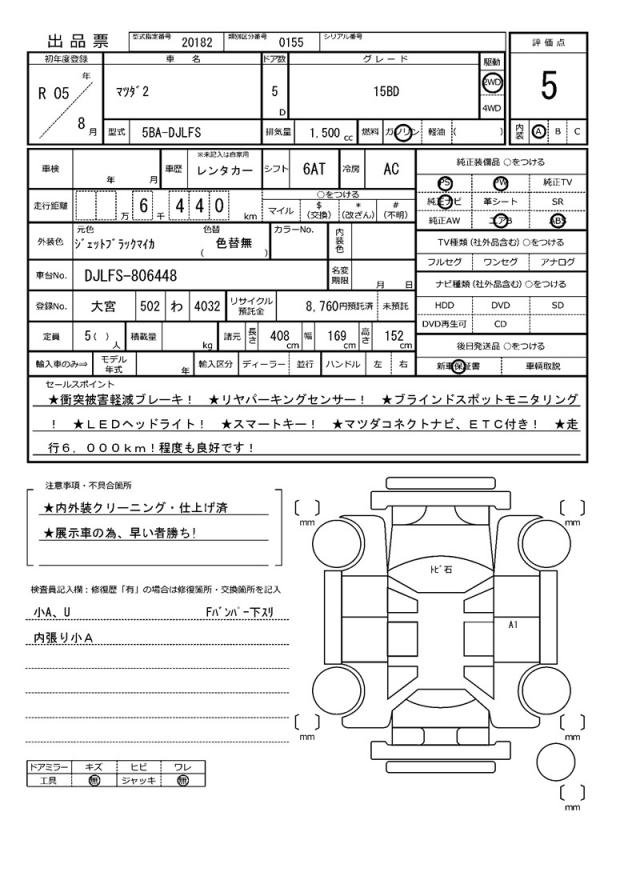 出品票
型式指定番号 20182 類別区分番号 0155 シリアル番号
評価点
初年度登録 車名 ドア数 グレード 駆動
R 05 年 8 月 マツダ2 5 D 15BD 2WD 4WD
5
型式 5BA-DJLFS 排気量 1.500 cc 燃料 ガソリン 軽油 ( )
内装 A B C
車検 年 月 車歴 ※未記入は自家用 レンタカー シフト 6AT 冷房 AC
純正装備品 ○をつける
PS PW 純正TV
純正ナビ 革シート SR
純正AW エアB ABS
走行距離 万 6 千 4 4 0 km
○をつける
マイル $(交換) *(改ざん) #(不明)
外装色 元色 ジェットブラックマイカ 色替 色替無 ( ) カラーNo. 内装色
TV種類(社外品含む)○をつける
フルセグ ワンセグ アナログ
車台No. DJLFS-806448 名変期限 月 日
ナビ種類(社外品含む)○をつける
HDD DVD SD
DVD再生可 CD
登録No. 大宮 502 わ 4032 リサイクル預託金 8,760円預託済 未預託
定員 5( )人 積載量 kg 諸元 長さ 408cm 幅 169cm 高さ 152cm
後日発送品 ○をつける
輸入車のみ⇒ モデル年式 年 輸入区分 ディーラー 並行 ハンドル 左 右
新車保証書 車輌取説
セールスポイント
★衝突被害軽減ブレーキ! ★リヤパーキングセンサー! ★ブラインドスポットモニタリング
! ★LEDヘッドライト! ★スマートキー! ★マツダコネクトナビ、ETC付き! ★走
行6,000km!程度も良好です!
注意事項・不具合箇所
★内外装クリーニング・仕上げ済
★展示車の為、早い者勝ち!
検査員記入欄:修復歴「有」の場合は修復箇所・交換箇所を記入
小A、U Fバンパー下スリ
内張り小A
ドアミラー キズ ヒビ ワレ
工具 無 ジャッキ 無
[ ] mm
[ ] mm
トビ石
A1
[ ] mm
[ ] mm
[ ] mm